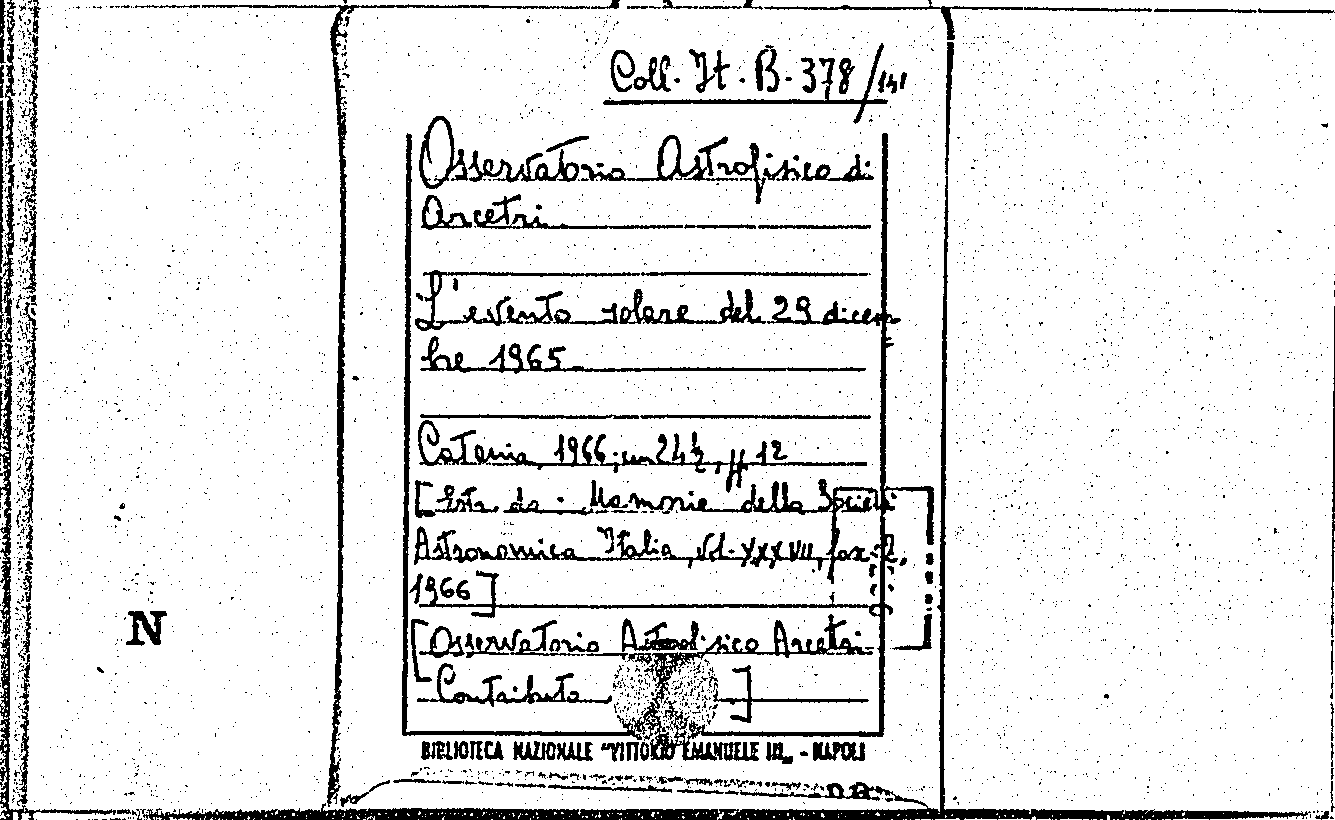 Coll. It. B. 378/141
Osservatorio Astrofisico di
Arcetri.
L'evento solare del 29 dicem
bre 1965.
Catania, 1966, in 24½, pp. 12
[Estr. da: Memorie della Società
Astronomica Italia, Vol. XXXVII, fasc. 2,
1966]
[Osservatorio Astrofisico Arcetri
Contributo ]
N
BIBLIOTECA NAZIONALE "VITTORIO EMANUELE III„ - NAPOLI